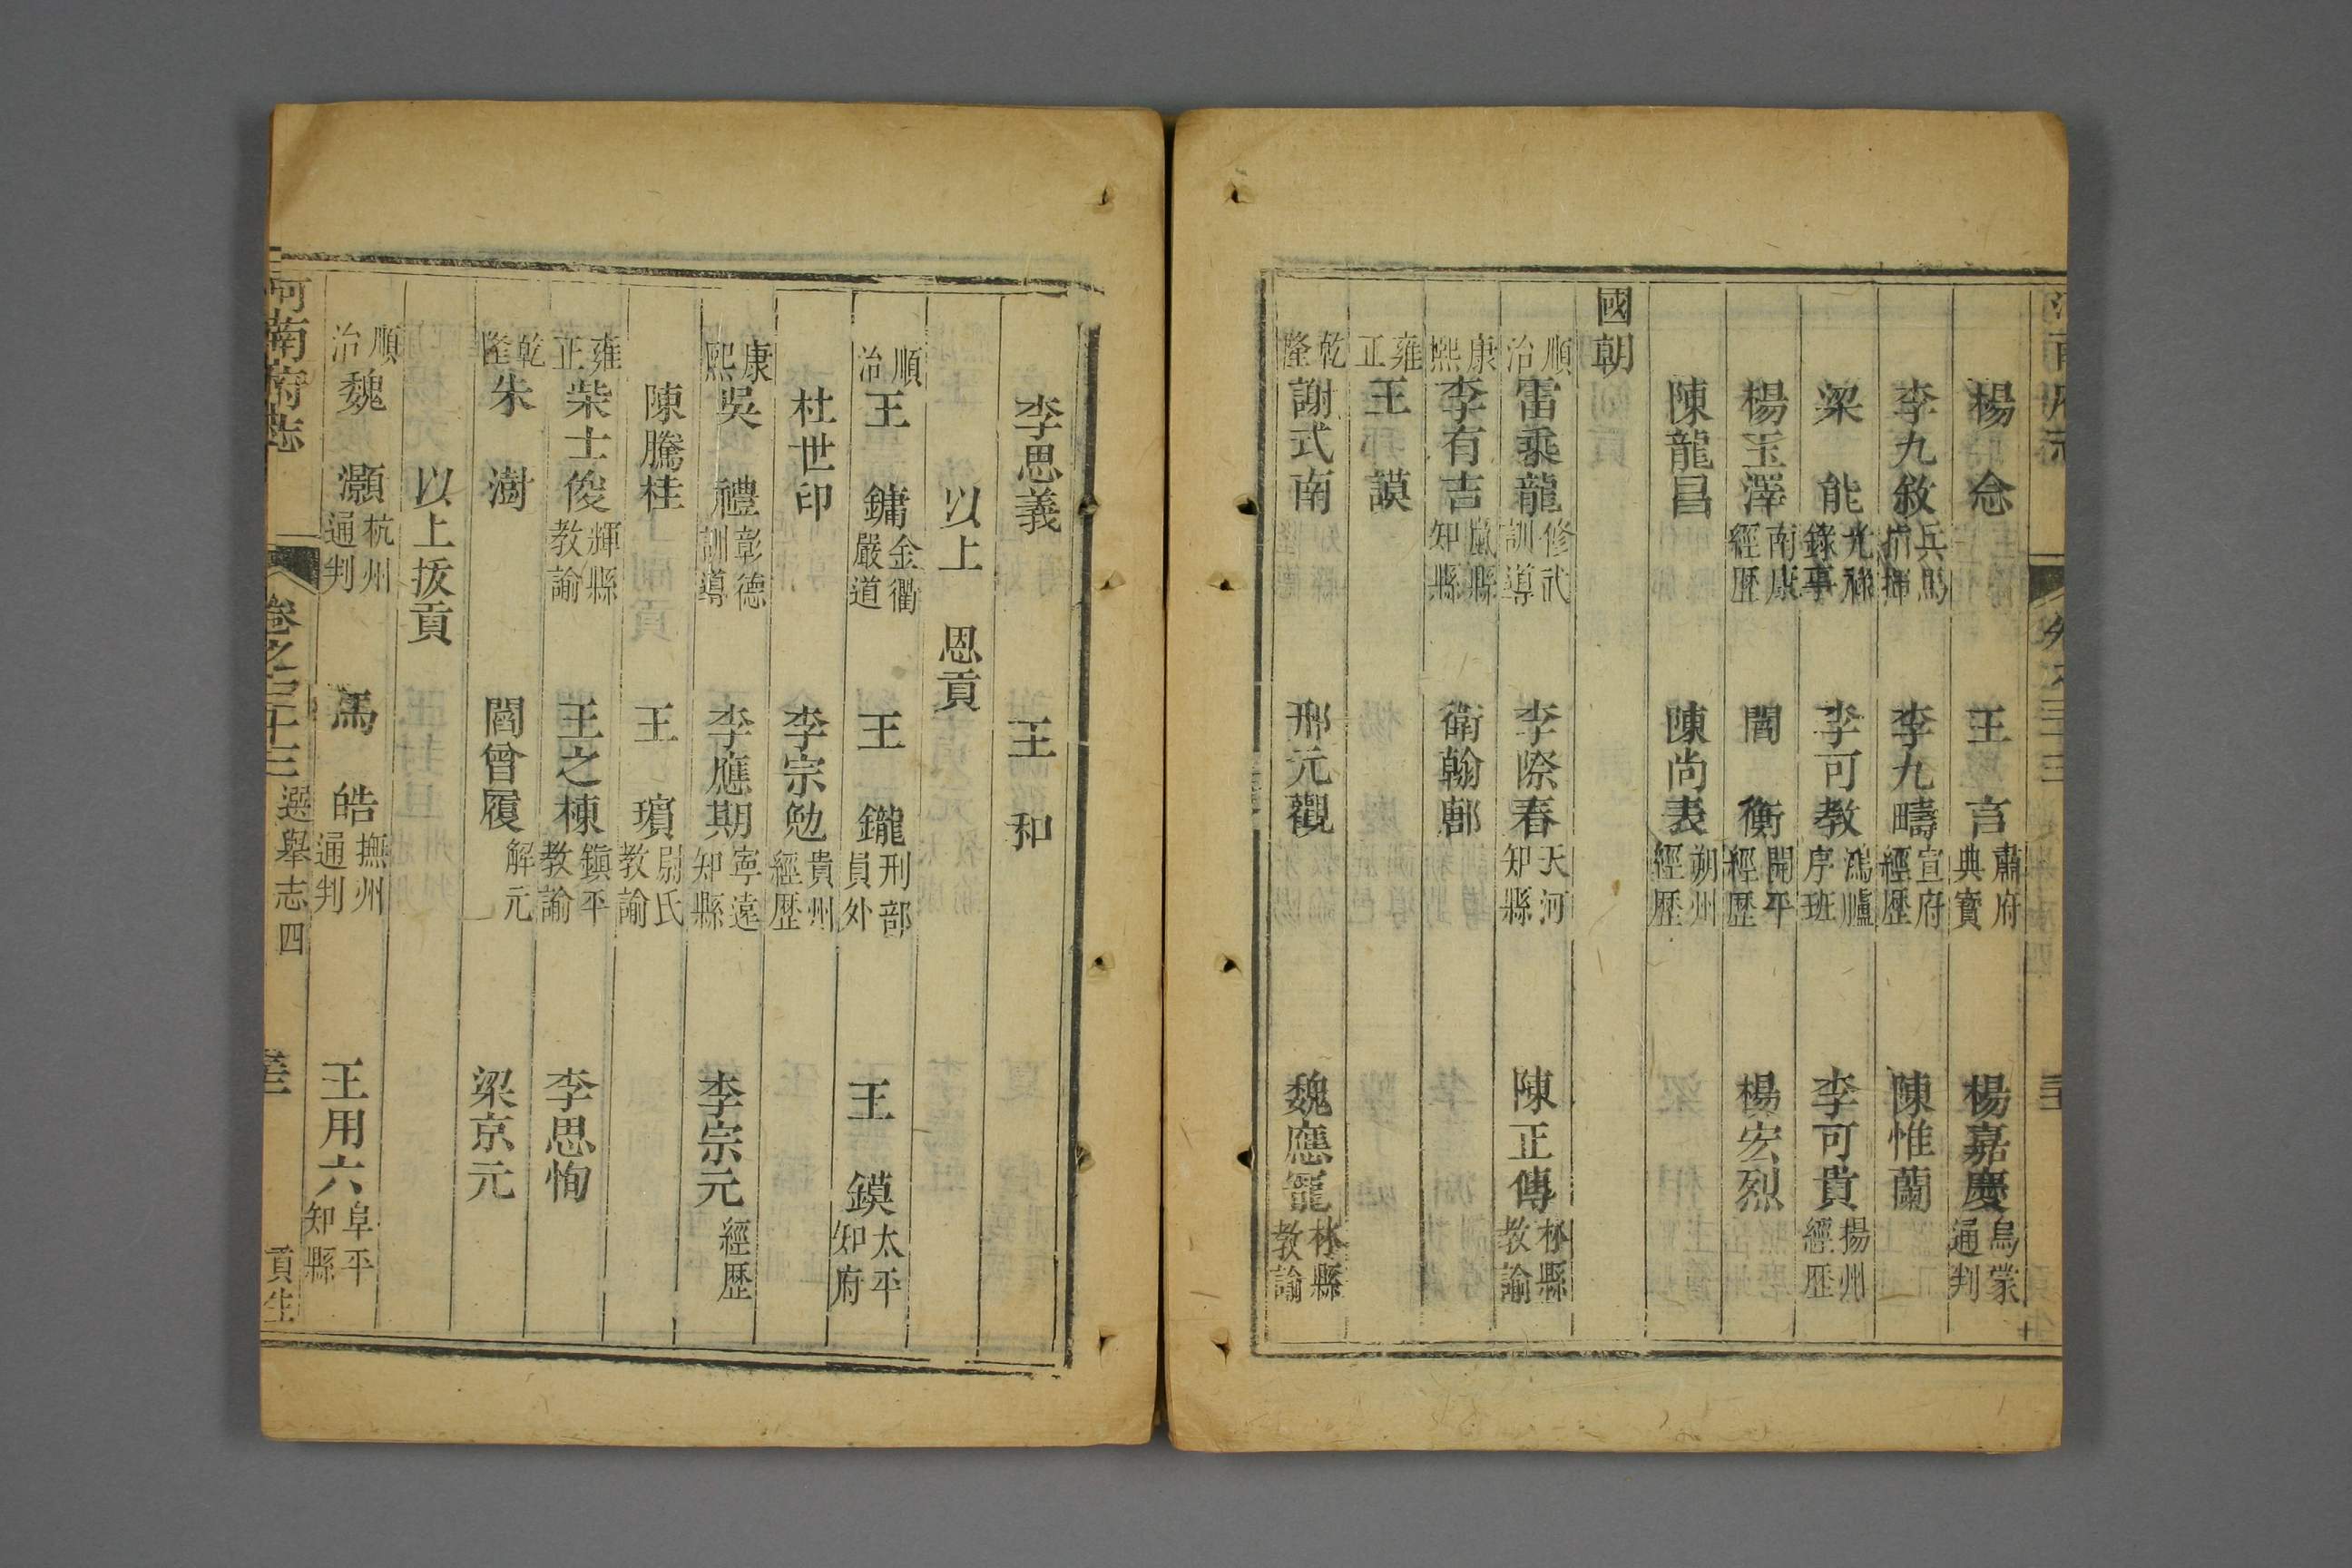 楊念 王言肅府典寶 楊嘉慶烏蒙通判
李九敘兵馬指揮 李九疇宣府經歷 陳惟蘭
梁能光祿錄事 李可教鴻臚序班 李可貴揚州經歷
楊玉澤南康經歷 閻衡開平經歷 楊宏烈
陳龍昌 陳尚表朔州經歷
國朝
順治雷乘龍修武訓導 李際春天河知縣 陳正傳林縣教諭
康熙李有吉嵐縣知縣 衛翰郙
雍正王謨
乾隆謝式南 邢元觀 魏應寵林縣教諭
李思義 王和
以上恩貢
順治王鏞金衢嚴道 王鑨刑部員外 王鏌太平知府
杜世印 李宗勉貴州經歷
康熙吳禮彰德訓導 李應期寧遠知縣 李宗元經歷
陳騰桂 王璸尉氏教諭
雍正柴士俊輝縣教諭 王之棟鎮平教諭 李思恂
乾隆朱澍 閻曾履解元 梁京元
以上拔貢
順治魏灝杭州通判 馬皓撫州通判 王用六阜平知縣
河南府志 卷之三十三 選舉志四 貢生